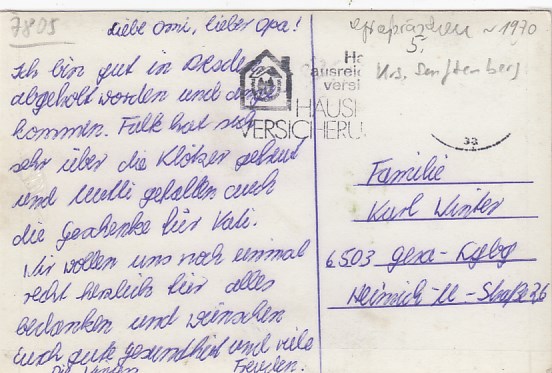 7805
Liebe Omi, lieber Opa!
Ich bin gut in Dresden
abgeholt worden und
kommen. Falk hat sich
sehr über die Klötzer gefreut
und Mutti gefallen auch
die Geschenke für Kati.
Wir wollen uns noch einmal
recht herzlich für alles
bedanken und wünschen
Euch gute Gesundheit und viele
Freuden.
~ 1970
5.
Krs. Senftenberg
Ha
ausreic
versi
HAUS
VERSICHERU
Familie
Karl Winter
6503 Gera-
Heinrich-